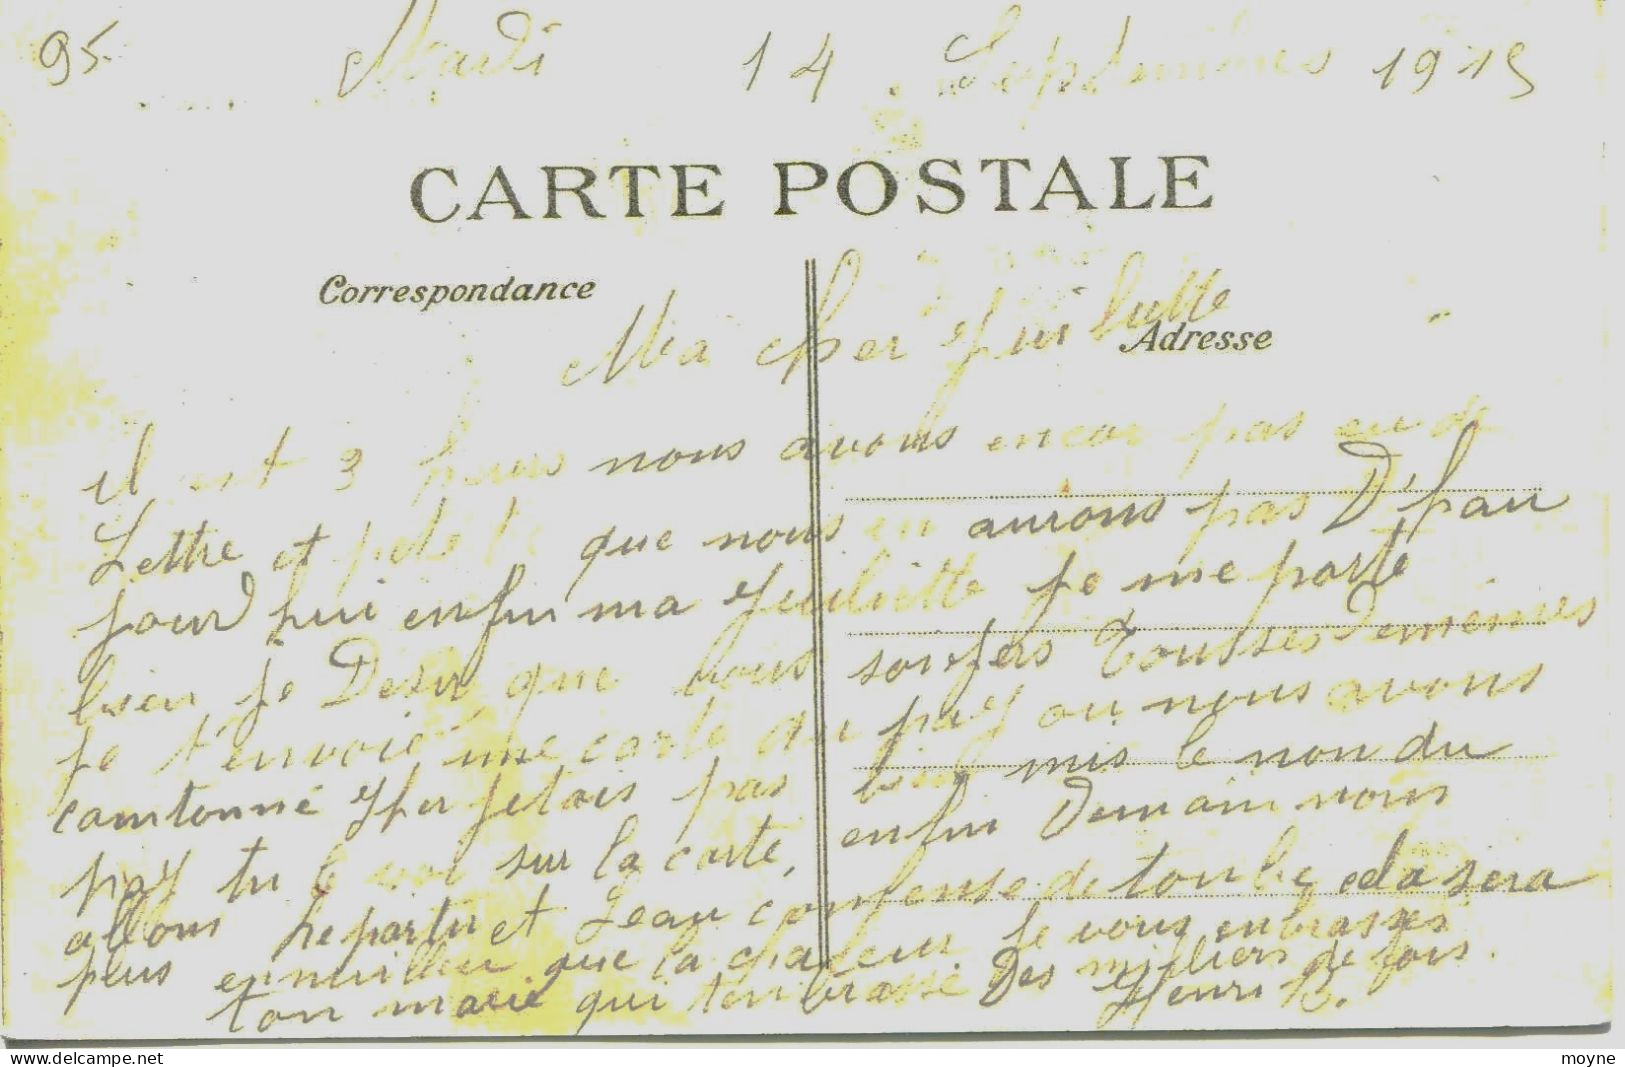 95 Mardi 14 Septembres 1915
CARTE POSTALE
Correspondance
Adresse
Ma cher Juiliette
il est 3 heures nous avons encor pas eu de
Lettre et que nous en aurons pas D'hau
jourd hui enfin ma Juiliette je me porte
bien je Desir que vous soifers Toutses Demémes
je t'envoié une carte du pay ou nous avons
cantonné jetais pas bien mis le non du
pay tu le voi sur la carte, enfin Demain nous
allons repartir et Leau comense de tonbe ela sera
plus ennuilleu que la chaleur. Je vous enbrasses
ton marie qui tenbrasse Des milliers de fois.
Henri R.
moyne